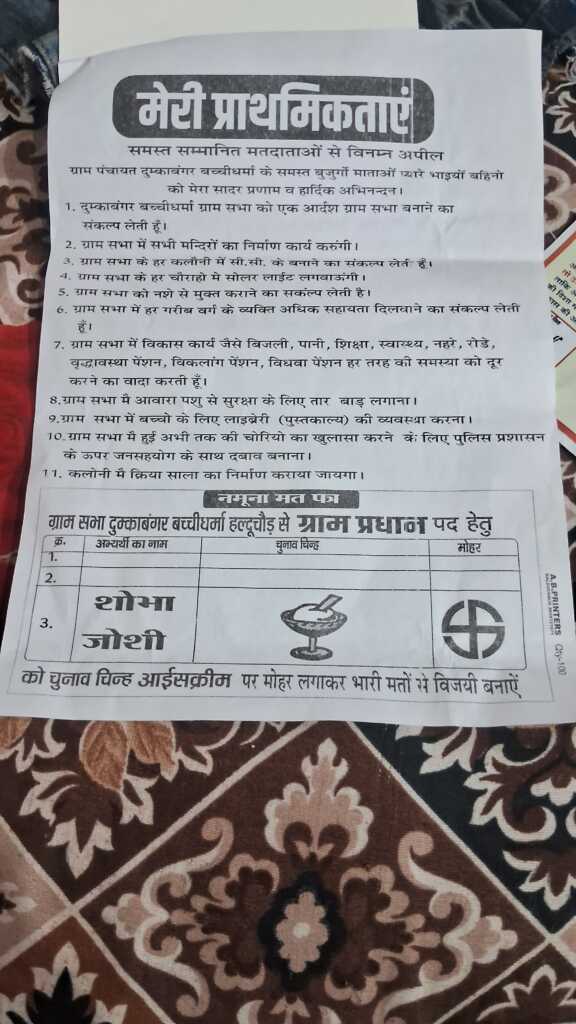 मेरी प्राथमिकताएं
समस्त सम्मानित मतदाताओं से विनम्न अपील
ग्राम पंचायत दुम्काबंगर बच्चीधर्मा के समस्त बुजुर्गो माताओं प्यारे भाइयों बहिनो
को मेरा सादर प्रणाम व हार्दिक अभिनन्दन।
1. दुम्काबंगर बच्चीधर्मा ग्राम सभा को एक आर्दश ग्राम सभा बनाने का
संकल्प लेती हूँ।
2. ग्राम सभा में सभी मन्दिरों का निर्माण कार्य करुंगी।
3. ग्राम सभा के हर कलौनी में सी.सी. के बनाने का संकल्प लेती हूँ।
4. ग्राम सभा के हर चौराहो मे सोलर लाईट लगवाऊंगी।
5. ग्राम सभा को नशे से मुक्त कराने का सकंल्प लेती है।
6. ग्राम सभा में हर गरीब वर्ग के व्यक्ति अधिक सहायता दिलवाने का संकल्प लेती
हूँ।
7. ग्राम सभा में विकास कार्य जैसे बिजली, पानी, शिक्षा, स्वास्थ्य, नहरे, रोडे,
वृद्धावस्था पेंशन, विकलांग पेंशन, विधवा पेंशन हर तरह की समस्या को दूर
करने का वादा करती हूँ।
8.ग्राम सभा मै आवारा पशु से सुरक्षा के लिए तार बाड़ लगाना।
9.ग्राम सभा में बच्चो के लिए लाइब्रेरी (पुस्तकाल्य) की व्यवस्था करना।
10.ग्राम सभा मै हुई अभी तक की चोरियो का खुलासा करने के लिए पुलिस प्रशासन
के ऊपर जनसहयोग के साथ दबाव बनाना।
11. कलोनी में क्रिया साला का निर्माण कराया जायगा।
नमूना मत पत्र
ग्राम सभा दुम्काबंगर बच्चीधर्मा हल्दूचौड़ से ग्राम प्रधान पद हेतु
क्र. अभ्यर्थी का नाम चुनाव चिन्ह मोहर
1.
2.
3. शोभा
जोशी
को चुनाव चिन्ह आईसक्रीम पर मोहर लगाकर भारी मतों से विजयी बनाऐं
A.B.PRINTERS Qty-100